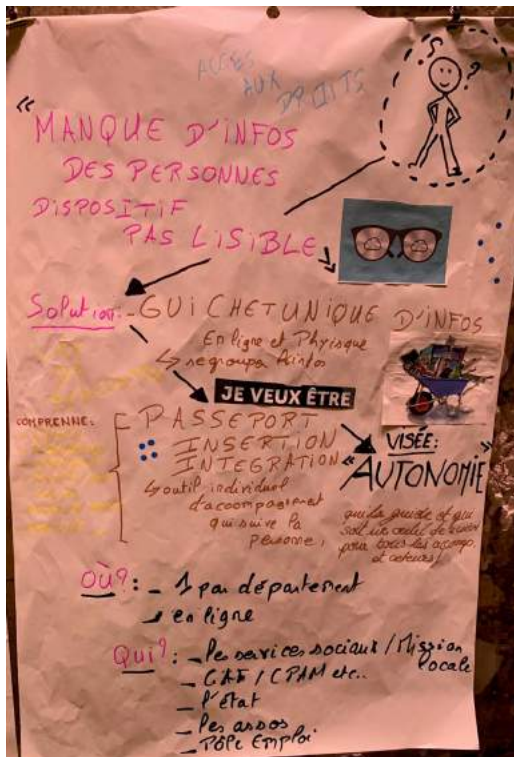 ACCES
AUX
DROITS
"MANQUE D'INFOS
DES PERSONNES
DISPOSITIF
PAS LISIBLE"
Solution: - GUICHET UNIQUE D'INFOS
En ligne et Physique
JE VEUX ÊTRE
COMPRENNE:
- PASSEPORT
INSERTION
INTEGRATION
outil individuel
d'accompagnement
qui suive la
personne,
VISÉE:
"AUTONOMIE"
qui la guide et qui
soit un outil de
pour tous les
et acteurs
OÙ?: - 1 par département
en ligne
Qui?: - les services sociaux / Mission
locale
- CAF / CPAM etc..
- l'état
- les assos
- Pôle Emploi